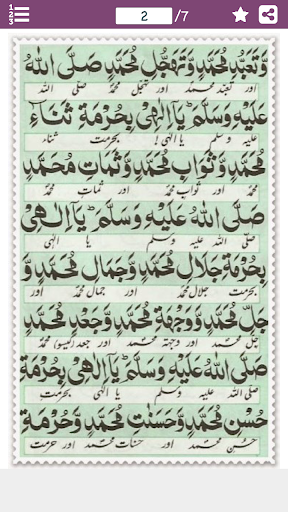 2 /7
وَّتَعَبُّدِ مُحَمَّدٍ وَّتَهَجُّلِ مُحَمَّدٍ صَلَّى اللهُ
اور تعبد محمد اور تہجل محمد صلی اللہ
عَلَيْهِ وَسَلَّمَ يَآ اِلٰهِىْ بِحُرْمَةِ ثَنَآءِ
علیہ وسلم یا الٰہی بحرمت ثناء
مُحَمَّدٍ وَّثَوَابِ مُحَمَّدٍ وَّثَمَاتِ مُحَمَّدٍ
محمد اور ثواب محمد اور ثمات محمد
صَلَّى اللهُ عَلَيْهِ وَسَلَّمَ يَآ اِلٰهِىْ
صلی اللہ علیہ وسلم یا الٰہی
بِحُرْمَةِ جَلَالِ مُحَمَّدٍ وَّجَمَالِ مُحَمَّدٍ وَّ
بحرمت جلال محمد اور جمال محمد اور
جَلِّ مُحَمَّدٍ وَّوَجْهَةِ مُحَمَّدٍ وَّجَعْدِ مُحَمَّدٍ
جل محمد اور وجہتہ محمد اور جعد (گیسو) محمد
صَلَّى اللهُ عَلَيْهِ وَسَلَّمَ يَآ اِلٰهِىْ بِحُرْمَةِ
صلی اللہ علیہ وسلم یا الٰہی بحرمت
حُسْنِ مُحَمَّدٍ وَّحَسَنٰتِ مُحَمَّدٍ وَّحُرْمَةِ
حسن محمد اور حسنات محمد اور حرمت